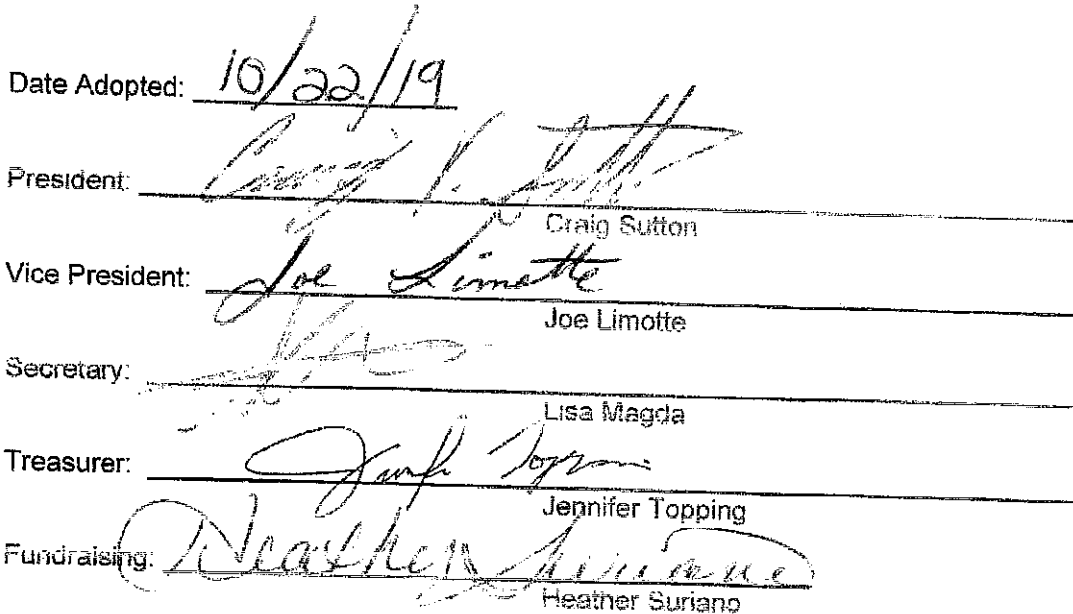 Date Adopted: 10/22/19
President: Craig Sutton
Craig Sutton
Vice President: Joe Limotte
Joe Limotte
Secretary:
Lisa Magda
Treasurer: Jennifer Topping
Jennifer Topping
Fundraising: Heather Suriano
Heather Suriano